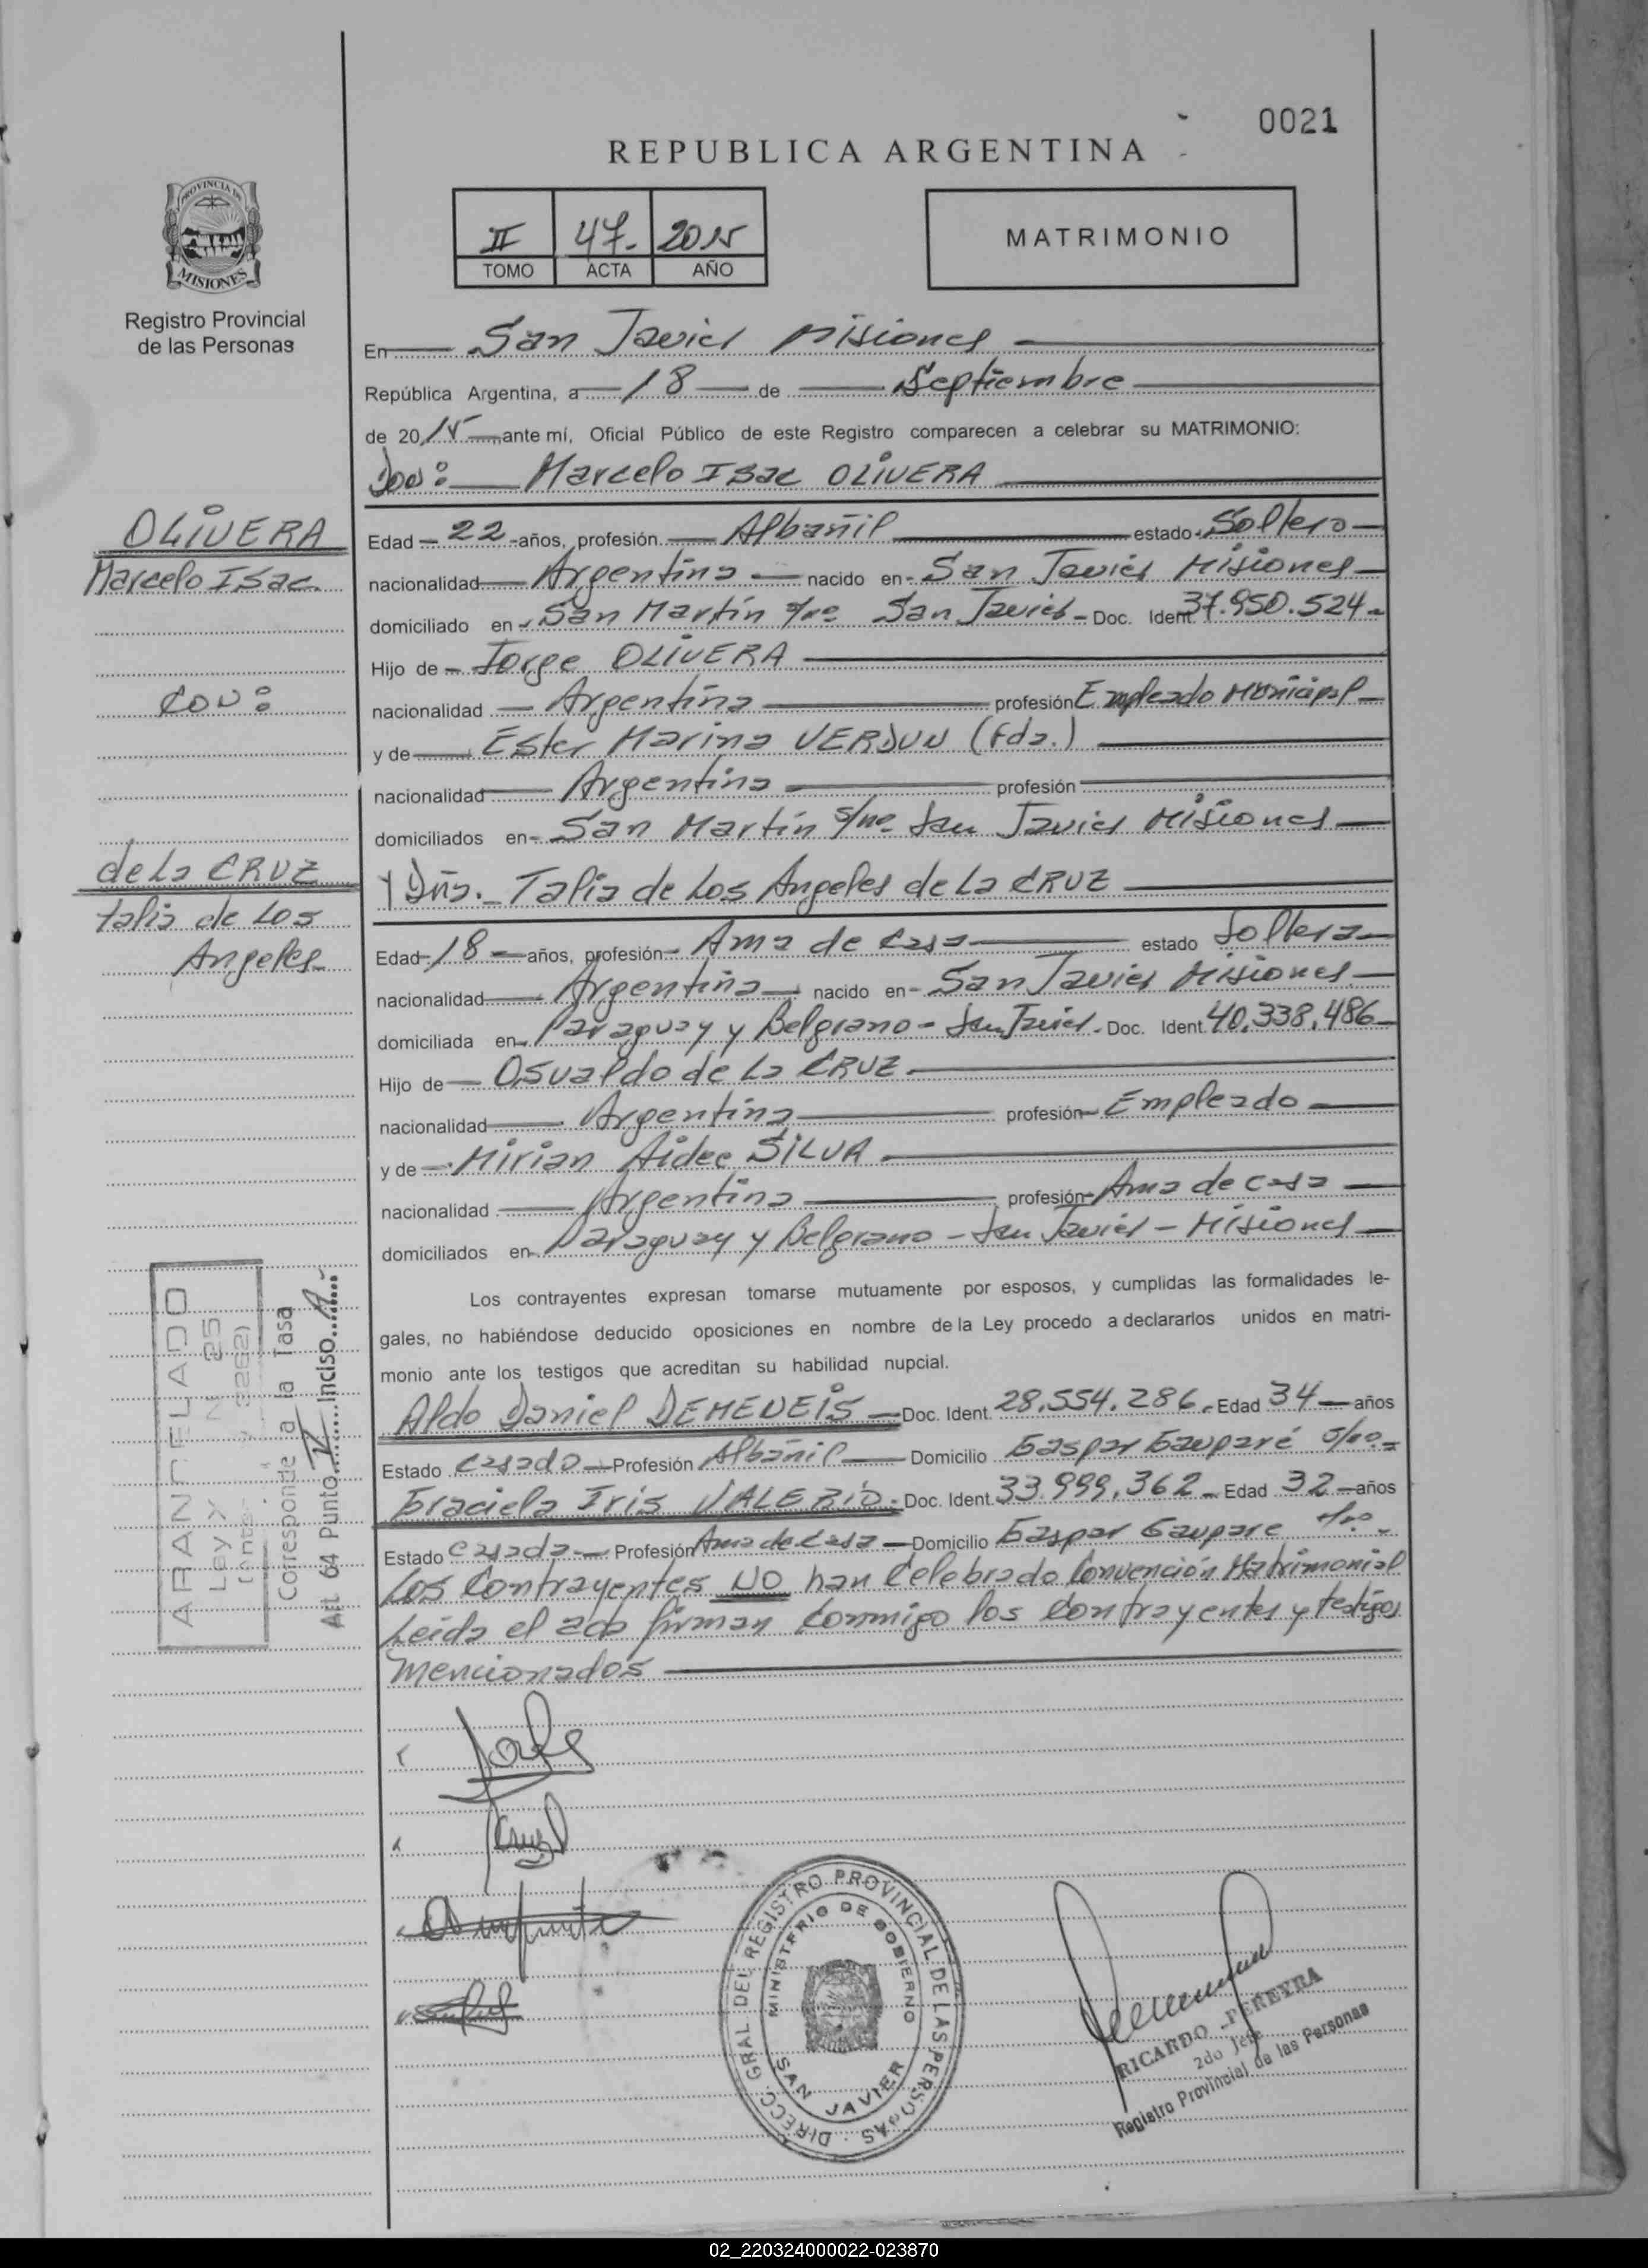 0021
REPUBLICA ARGENTINA
II 47- 2015
TOMO ACTA AÑO
MATRIMONIO
PROVINCIA DE
MISIONES
Registro Provincial
de las Personas
En San Javier Misiones
República Argentina, a 18 de Septiembre
de 2015 ante mí, Oficial Público de este Registro comparecen a celebrar su MATRIMONIO:
Don: Marcelo Isac OLIVERA
OLIVERA
Marcelo Isac
con:
de la CRUZ
Talia de Los
Angeles
Edad 22 años, profesión Albañil estado Soltero
nacionalidad Argentina nacido en San Javier Misiones
domiciliado en San Martín s/no San Javier - Doc. Ident. 37.950.524-
Hijo de Jorge OLIVERA
nacionalidad Argentina profesión Empleado Municipal
y de Ester Marina VERDUN (Fda.)
nacionalidad Argentina profesión
domiciliados en San Martín s/no San Javier Misiones
Y Dña. Talia de Los Angeles de La CRUZ
Edad 18 años, profesión Ama de casa estado Soltera
nacionalidad Argentina nacido en San Javier Misiones
domiciliada en Paraguay y Belgrano - San Javier - Doc. Ident. 40.338.486
Hijo de Osvaldo de La CRUZ
nacionalidad Argentina profesión Empleado
y de Mirian Aidee SILVA
nacionalidad Argentina profesión Ama de casa
domiciliados en Paraguay y Belgrano - San Javier - Misiones
Los contrayentes expresan tomarse mutuamente por esposos, y cumplidas las formalidades le-
gales, no habiéndose deducido oposiciones en nombre de la Ley procedo a declararlos unidos en matri-
monio ante los testigos que acreditan su habilidad nupcial.
Aldo Daniel DEMENEIS Doc. Ident. 28.554.286 Edad 34 años
Estado casado Profesión Albañil Domicilio Gaspar Gauparé s/no
Graciela Iris VALERIO Doc. Ident. 33.999.362 Edad 32 años
Estado casada Profesión Ama de casa Domicilio Gaspar Gaupare s/no
Los contrayentes NO han celebrado Convención Matrimonial
Leida el acta firman conmigo los contrayentes y testigos
mencionados
ARANCELADO
Ley X N 25
Corresponde a la Tasa
Art. 64 Punto V Inciso A
Cruz
DIRECC. GRAL. DEL REGISTRO PROVINCIAL DE LAS PERSONAS
MINISTERIO DE GOBIERNO
SAN JAVIER
RICARDO PEREYRA
2do Jefe
Registro Provincial de las Personas
02_220324000022-023870